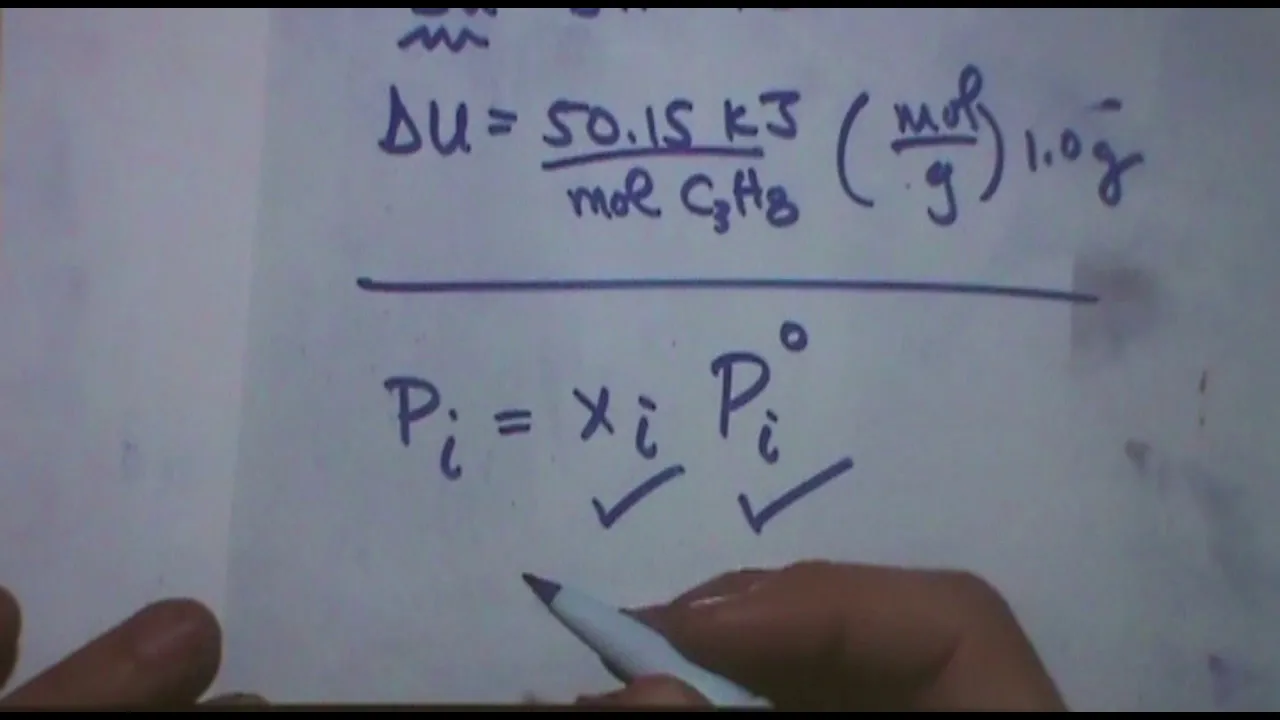 ΔU = 50.15 kJ / mol C₃H₈ (mol / g) 1.0 g
Pᵢ = xᵢ Pᵢ° 
✓ ✓